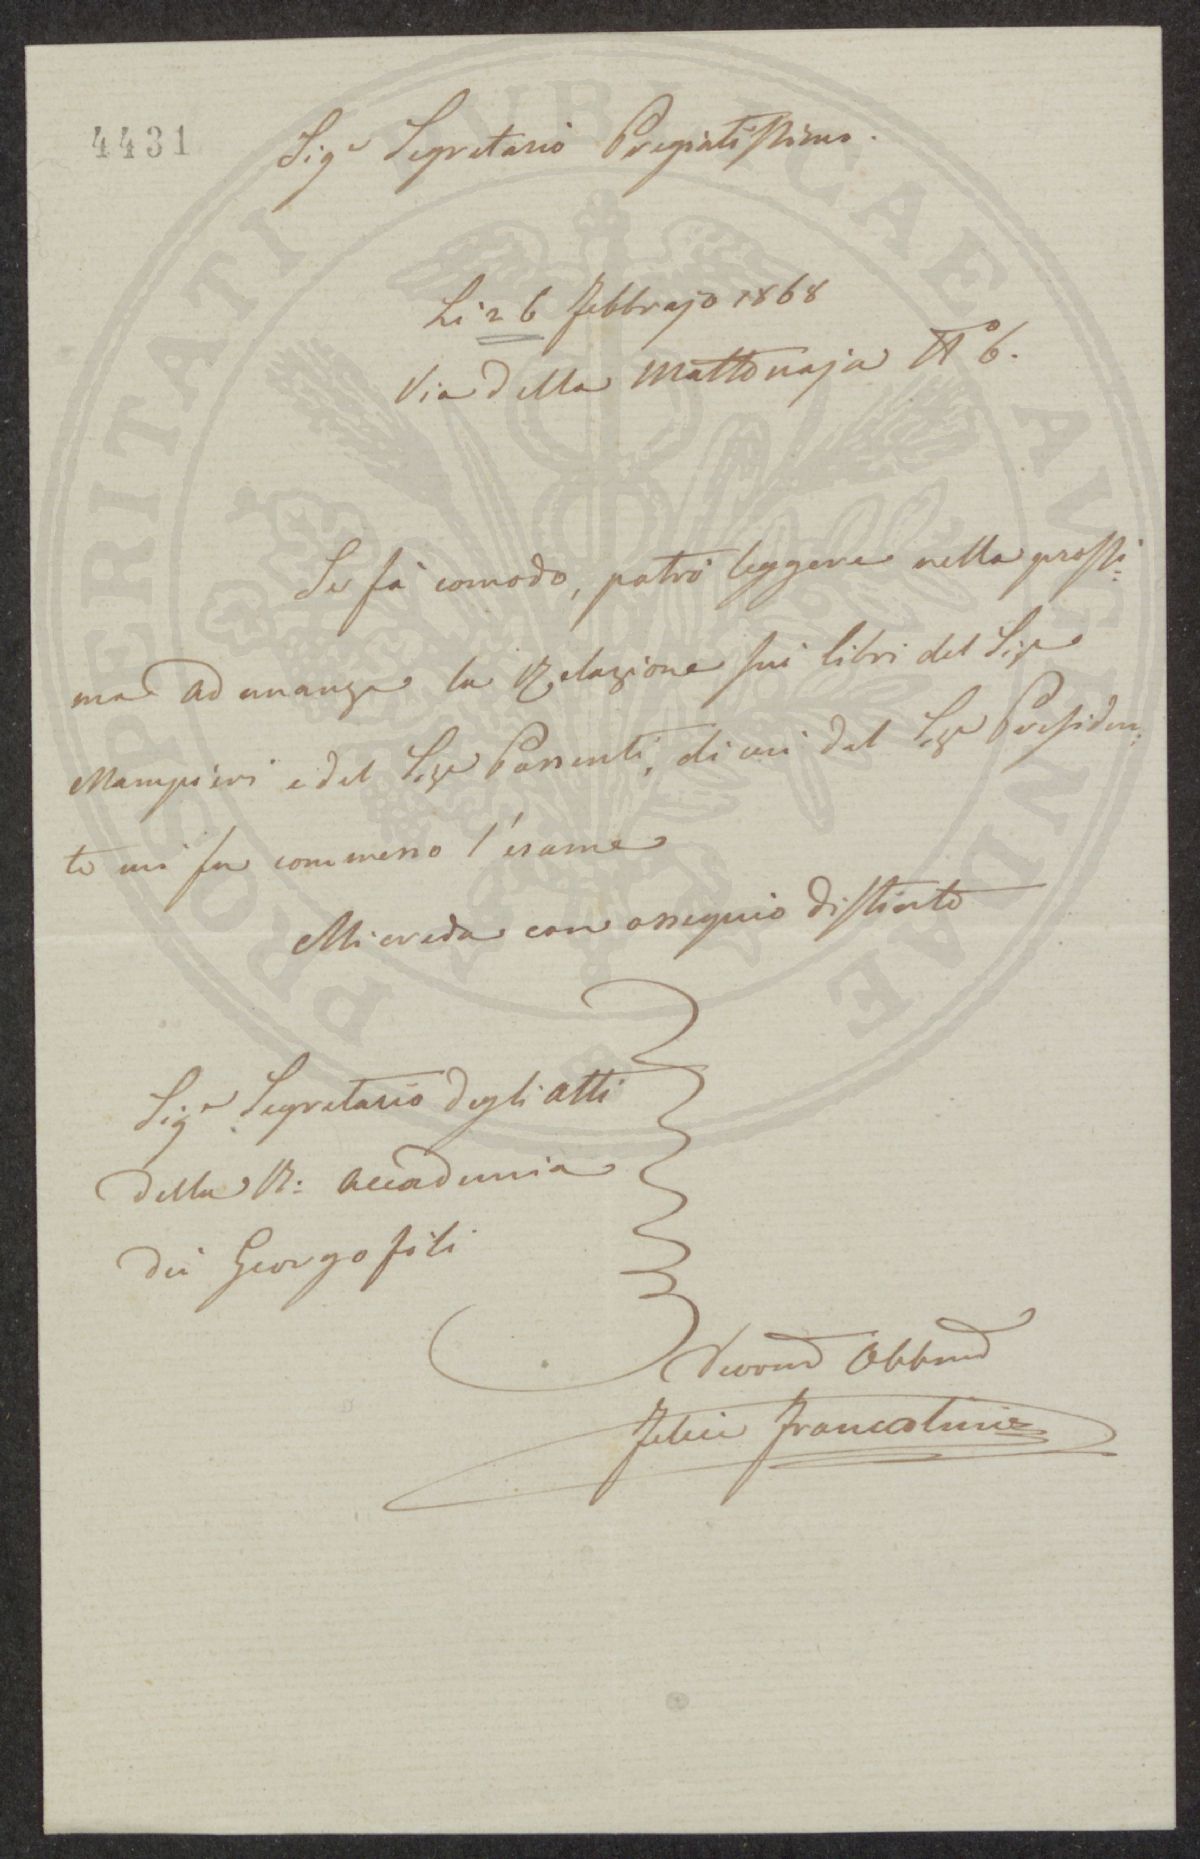 4431
Sig.r Segretario Pregiatissimo.
Li 26 Febbrajo 1868
Via della Mattonaja N.o 6.
Se fà comodo, potrò leggere nella prossi=
ma Adunanza la Relazione sui libri del Sig.r
Mampieri e del Sig.r Parrenti, di cui dal Sig.r Presiden=
te mi fu commesso l'esame
Mi creda con ossequio distinto
Sig.r Segretario degli Atti
della R: Accademia
dei Georgofili
Devmo Obbmo
Felice Francolini
PROSPERITATI PUBLICAE AUGENDAE